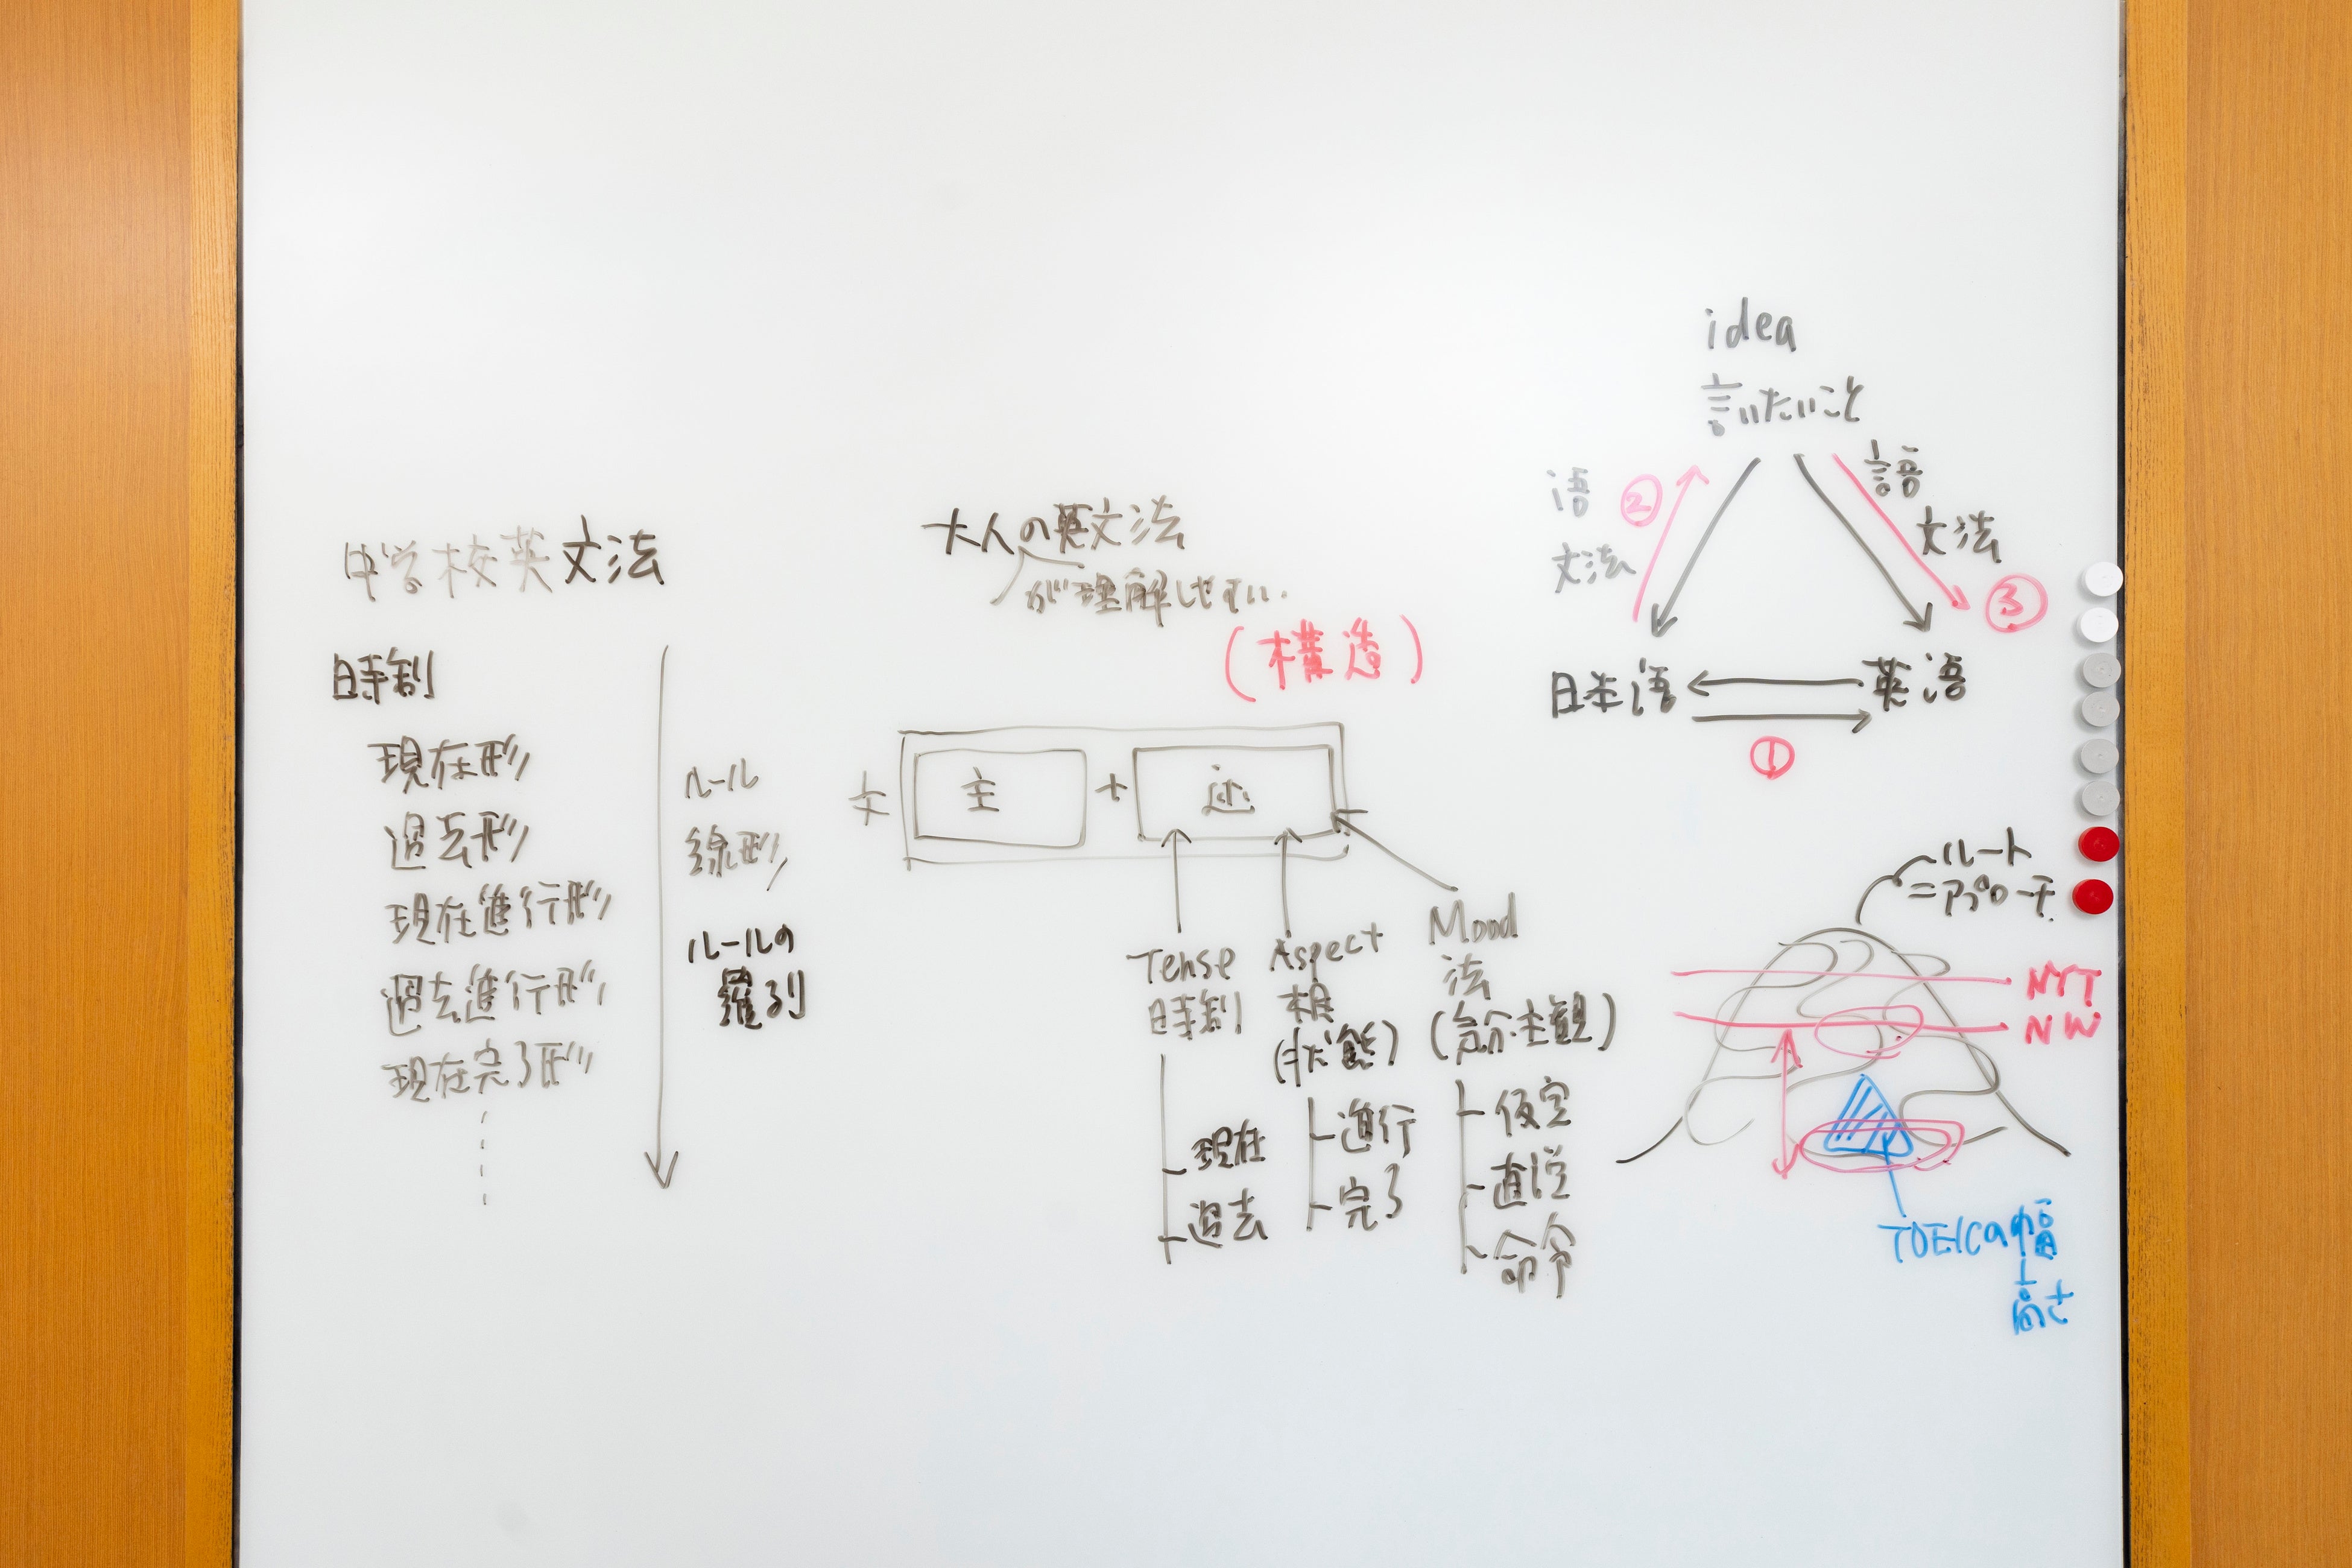 中学校英文法
時制
現在形
過去形
現在進行形
過去進行形
現在完了形
ルール
線形
ルールの
羅列
大人の英文法
が理解しやすい
(構造)
文
主
+
述
Tense
時制
現在
過去
Aspect
相
(状態)
進行
完了
Mood
法
(気分・主観)
仮定
直説
命令
idea
言いたいこと
語
文法
②
語
文法
③
日本語
英語
①
ルート
=アプローチ
NYT
NW
TOEICの幅
高さ